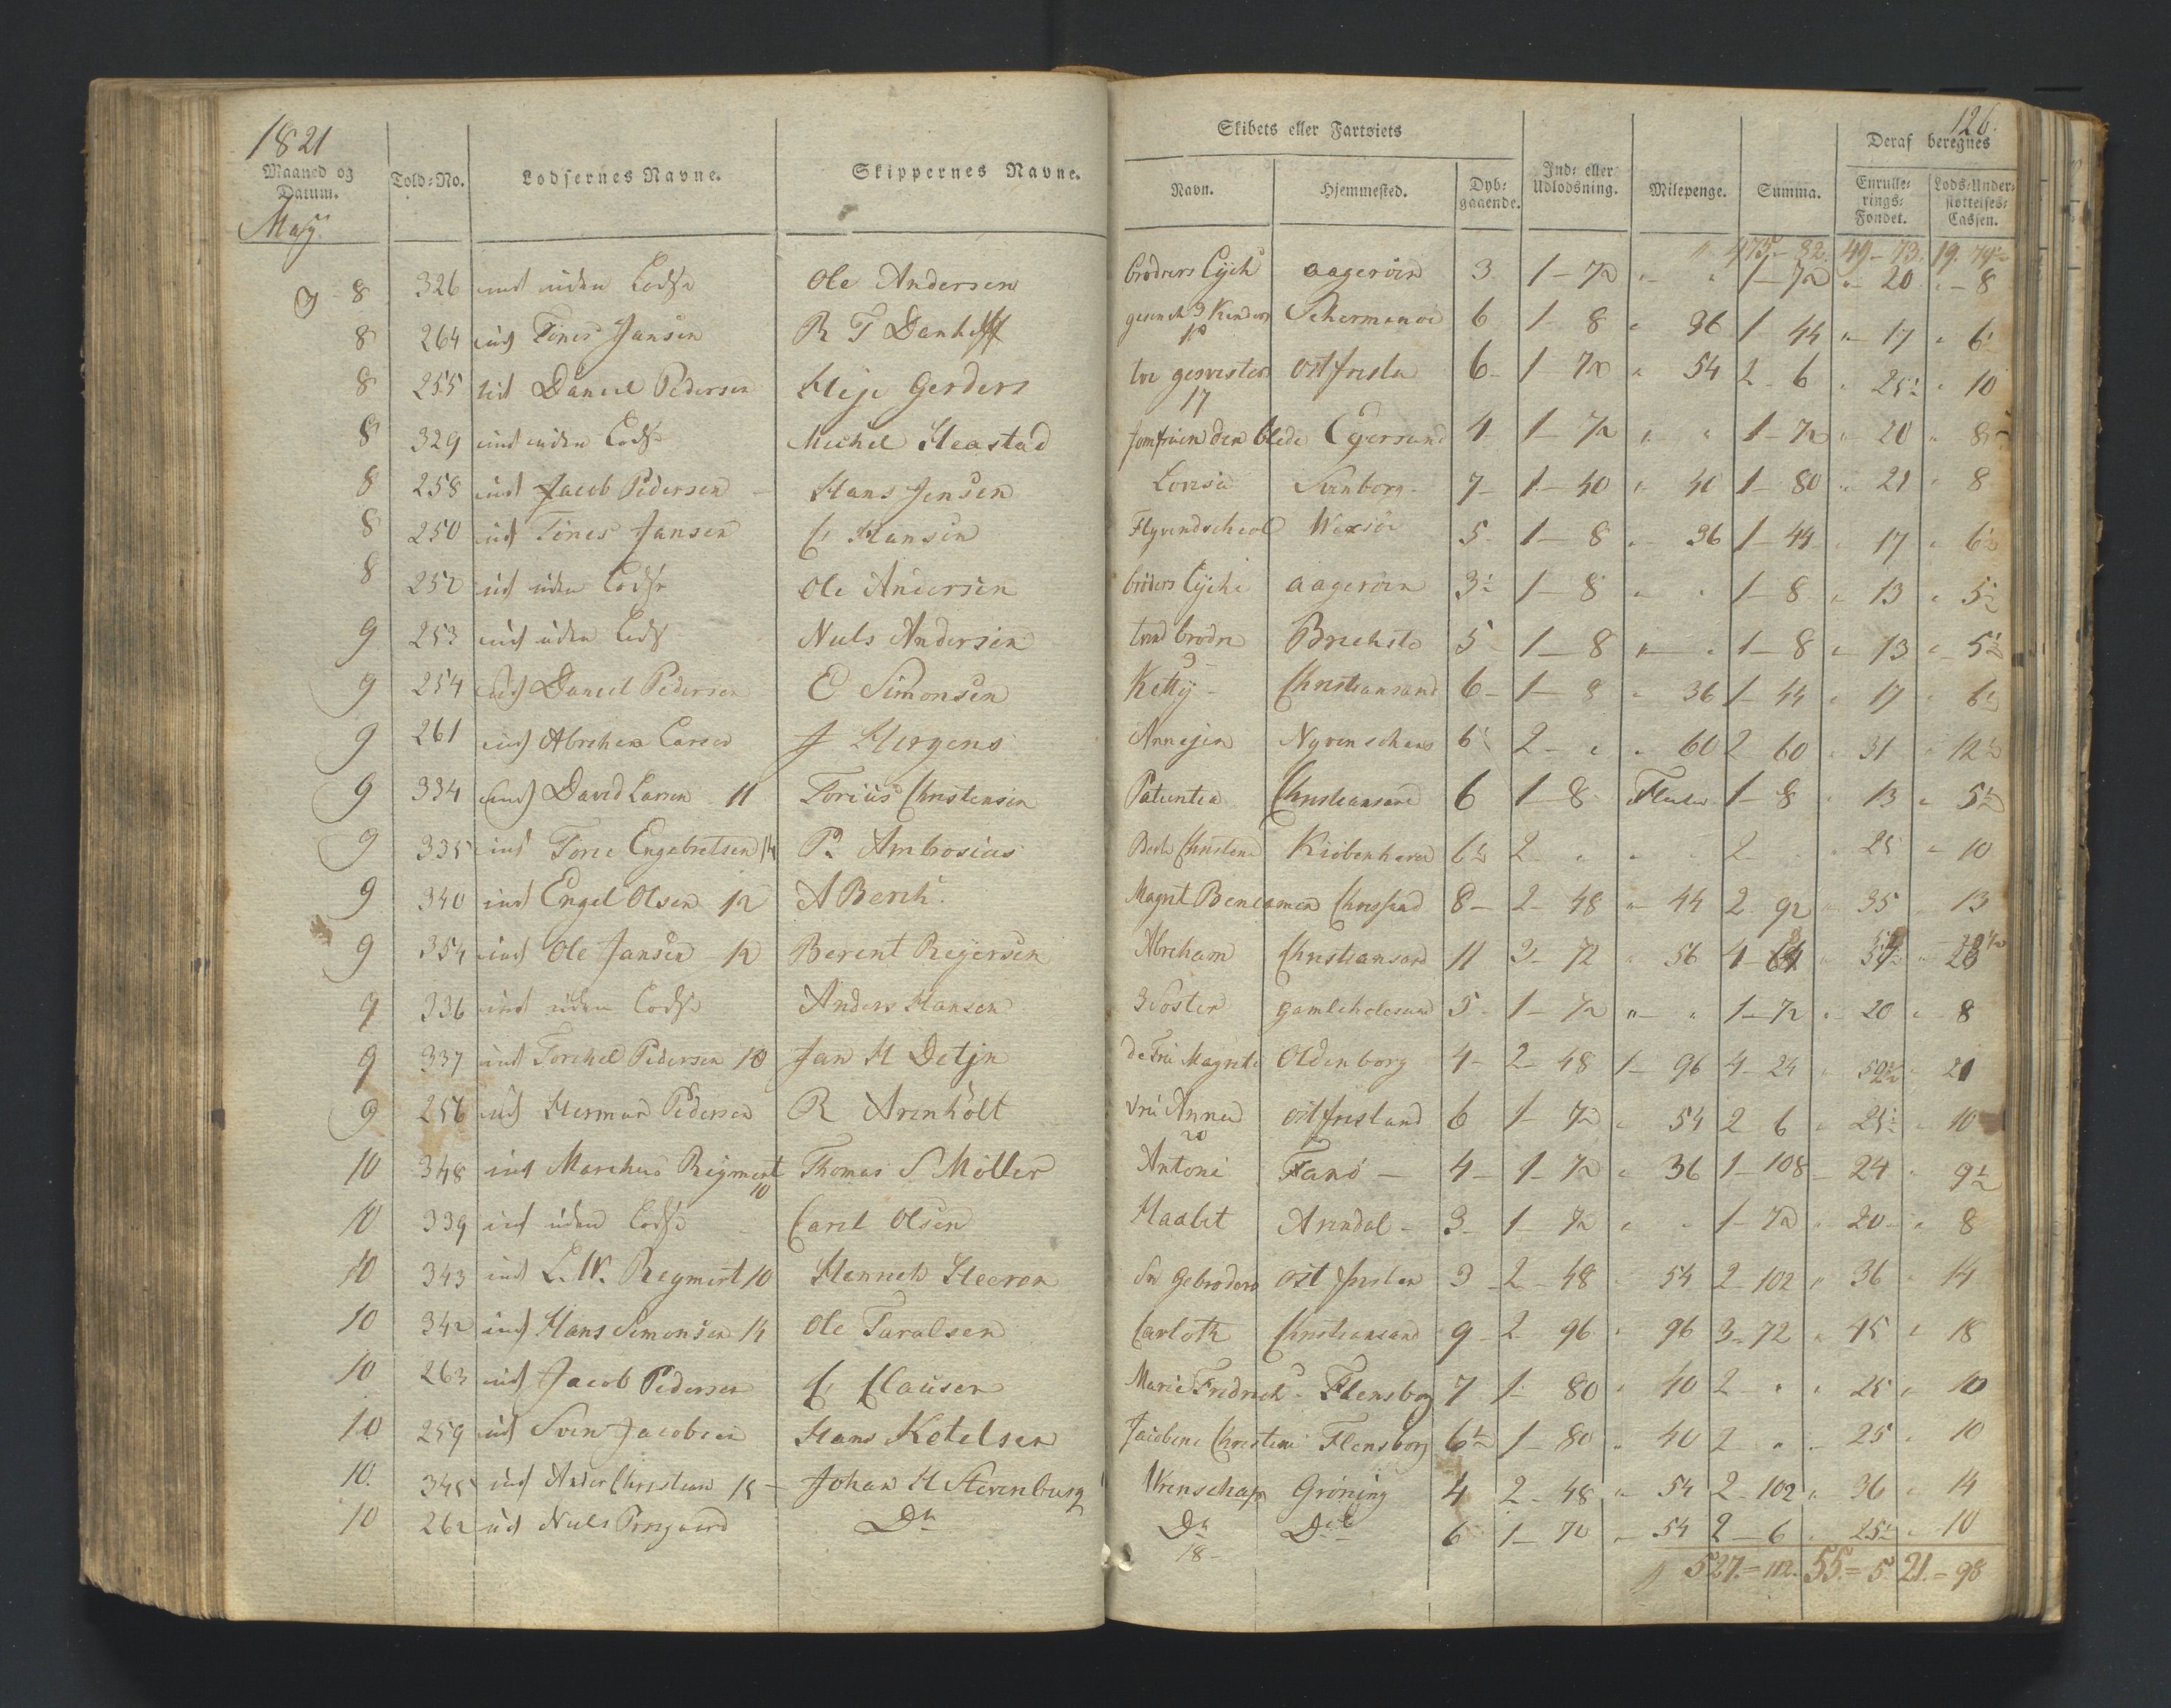 1821
126.
Maaned og Datum.
Told-No.
Lodsernes Navne.
Skippernes Navne.
Skibets eller Fartøiets
Navn.
Hjemmested.
Dybgaaende.
Ind- eller Udlodsning.
Milepenge.
Summa.
Deraf beregnes
Enrullerings-Fondet.
Lods-Understøttelses-Cassen.
May
475 - 82. 49 - 73. 19. 79½
8 326 ind uden Lodse Ole Andersen brødrers Lycke aagerøen 3 1 - 72 " " 1 - 72 " 20 " 8
8 264 ud Tines Jansen R T Danhoff 10 6 1 - 8 " 36 1 - 44 " 17 " 6½
8 255 ud Daniel Pedersen Heje Gerders tve gesvister 17 ostfrisla 6 1 - 72 " 54 2 - 6 " 25½ " 10
8 329 ind uden Lodse Michel Heastad Jomfruen den blide Egersund 4 1 - 72 " " 1 - 72 " 20 " 8
8 258 ud Jacob Pedersen Hans Jensen Lovisa Svinborg 7 1 - 40 " 40 1 - 80 " 21 " 8
8 250 ud Tines Jansen C Hansen Flyvendscheold 5 1 - 8 " 36 1 - 44 " 17 " 6½
8 252 ud uden Lodse Ole Andersen brøders Lycke aagerøen 3½ 1 - 8 " " 1 - 8 " 13 " 5½
9 253 ud uden Lods Niels Andersen tvend brødre Brecksto 5 1 - 8 " " 1 - 8 " 13 " 5½
9 254 ud Daniel Pedersen E Simonsen Ketty Christiansand 6 1 - 8 " 36 1 - 44 " 17 " 6½
9 261 ud Abreham Larsen J Hergens Annejen Nyvenschans 6½ 2 - " " 60 2 60 " 31 " 12½
9 334 ind David Larsen 11 Torius Christensen Patientea Christiansand 6 1 - 8 1 - 8 " 13 " 5½
9 335 ind Torie Engebretsen 14 P. Ambrosius Christiane Kiøbenhavn 6½ 2 " " " 2 " " 25 " 10
9 340 ind Engel Olsen 12 A Berch Magret Beneamen Chrissand 8 2 - 48 " 44 2 - 92 " 35 " 13
9 354 ind Ole Jansen 12 Berent Reyersen Abreham Christiansand 11 3 - 72 " 56 4 -
9 336 ind uden Lodse Anders Hansen 3 Søster gamlehelesund 5 1 - 72 " " 1 - 72 " 20 " 8
9 337 ind Torchel Pedersen 10 Jan H Detjn de Frú Magrete Oldenborg 4 2 - 48 1 - 96 4 - 24 " 50½ " 21
9 256 ud Herman Pedersen R Arenholt Vrú Anna 20 ostfrisland 6 1 - 72 " 54 2 6 " 25½ " 10
10 348 ind Marchus Reymert 10 Thomas S Möller Antoni Fanö 4 1 - 72 " 36 1 - 108 " 24 " 9½
10 339 ind uden Lodse Carel Olsen Haabet Arendal 3 1 - 72 " " 1 - 72 " 20 " 8
10 343 ind L. W. Reymert 10 Hennech Heeren Gebroders ost frislan 3 2 - 48 " 54 2 - 102 " 36 " 14
10 342 ind Hans Simonsen 14 Ole Taralsen Carloth Christiansand 9 2 96 " 96 3 - 72 " 45 " 18
10 263 ud Jacob Pedersen C Clausen Marie Fredrick Flensborg 7 1 - 80 " 40 2 " " 25 " 10
10 259 ud Sven Jacobsen Hans Ketelsen Jacobine Christine Flensborg 6½ 1 - 80 " 40 2 " " 25 " 10
10 345 ind Ander Christians 15 Johan H Stevenburg Vrenschap Gröning 4 2 - 48 " 54 2 - 102 " 36 " 14
10 262 ud Niels Do Do 18 Do 6 1 - 72 " 54 2 - 6 " 25½ " 10
527 = 112. 55 = 5. 21. = 98